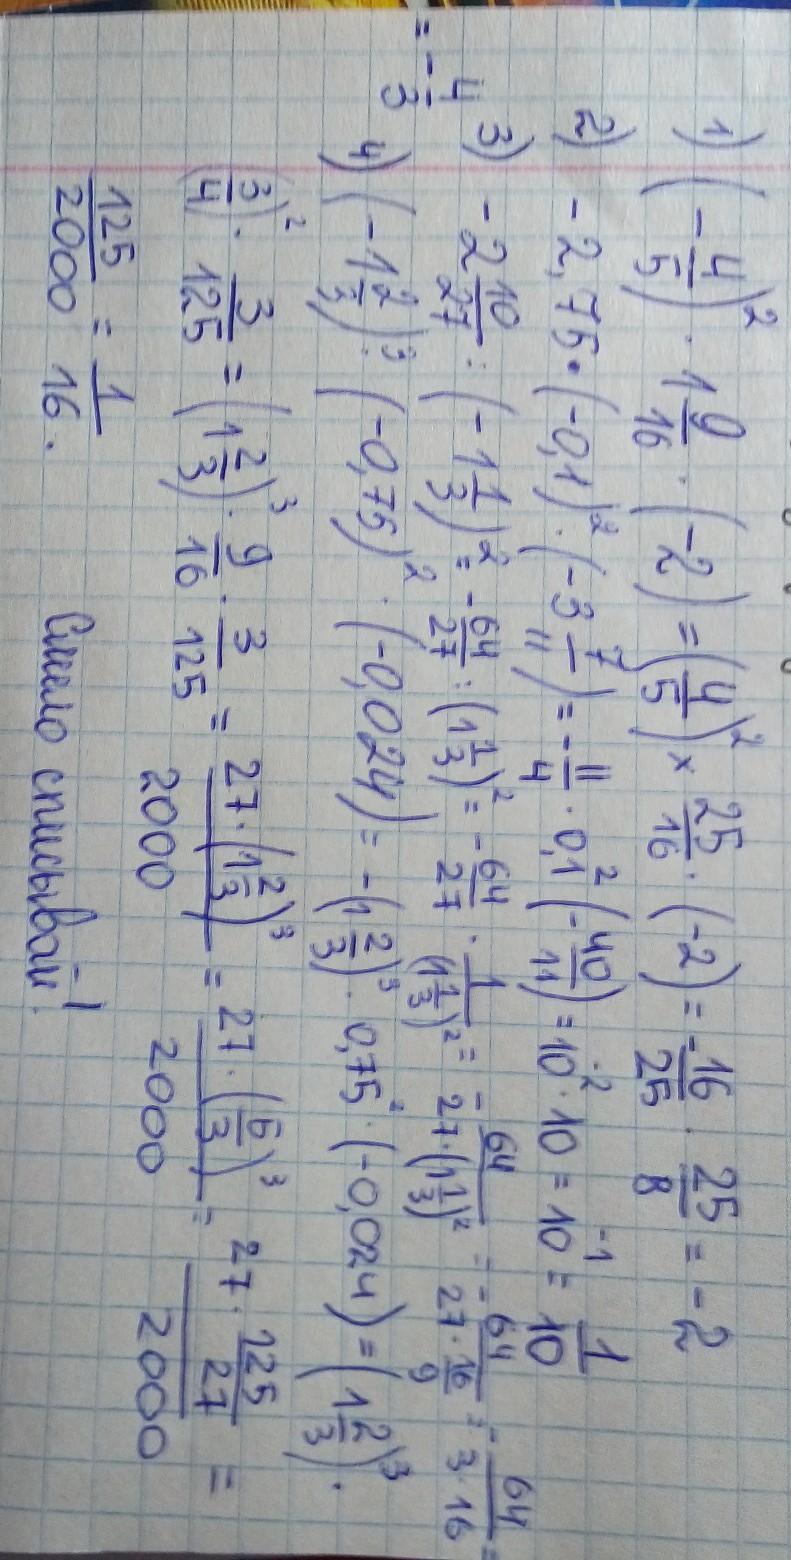 1) (-4/5)² · 1 9/16 · (-2) = (4/5)² × 25/16 · (-2) = -16/25 · 25/8 = -2
2) -2,75 · (-0,1)² · (-3 7/11) = -11/4 · 0,1² (-40/11) = 10⁻² · 10 = 10⁻¹ = 1/10
3) -2 10/27 : (-1 1/3)² = -64/27 : (1 1/3)² = -64/27 · 1/(1 1/3)² = -64/(27 · (1 1/3)²) = -64/(27 · 16/9) = -64/(3 · 16) =
= -4/3
4) (-1 2/3)³ · (-0,75)² · (-0,024) = -(1 2/3)³ · 0,75² · (-0,024) = (1 2/3)³ ·
(3/4)² · 3/125 = (1 2/3)³ · 9/16 · 3/125 = 27 · (1 2/3)³/2000 = 27 · (5/3)³/2000 = 27 · 125/27/2000 =
125/2000 = 1/16.
Смело списывай!